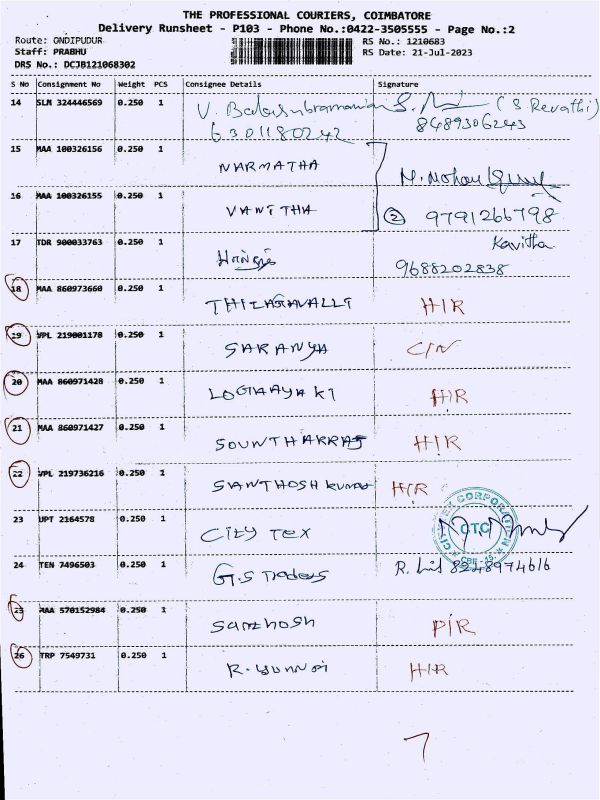 THE PROFESSIONAL COURIERS, COIMBATORE
Delivery Runsheet - P103 - Phone No.:0422-3505555 - Page No.:2
Route: ONDIPUDUR RS No.: 1210683
Staff: PRABHU RS Date: 21-Jul-2023
DRS No.: DCJB121068302
S No Consignment No Weight PCS Consignee Details Signature
14 SLM 324446569 0.250 1 V. Balasubramanian S. (S Revathi)
6301180242 8489306243
15 MAA 100326156 0.250 1 NARMATHA
M. Mohan
16 MAA 100326155 0.250 1 VANITHA 2 9791266798
17 TDR 900033763 0.250 1 Kavitha
9688202838
18 MAA 860973660 0.250 1 THILAGAVALLI HIR
19 VPL 219001178 0.250 1 SARANYA C/N
20 MAA 860971428 0.250 1 LOGAAYAKI HIR
21 MAA 860971427 0.250 1 SOUNTHARRAJ HIR
22 VPL 219736216 0.250 1 SANTHOSH KUMAR HIR
23 UPT 2164578 0.250 1 CITY TEX CORPORATION
24 TEN 7496503 0.250 1 G.S Traders R. 8248974616
25 MAA 570152984 0.250 1 SANTHOSH PIR
26 TRP 7549731 0.250 1 HIR
7